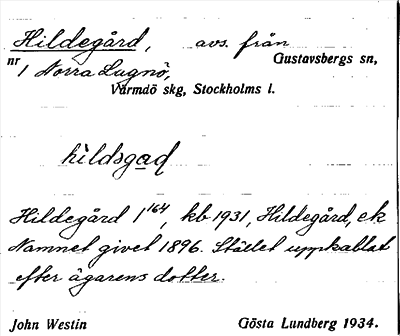 Hildegård, avs. från
nr 1 Norra Lagnö, Gustavsbergs sn,
Värmdö skg, Stockholms l.
hìldsgaɖ
Hildegård 1¹⁶⁴, kb 1931, Hildegård, ek
Namnet givet 1896. Stället uppkallat
efter ägarens dotter.
John Westin Gösta Lundberg 1934.